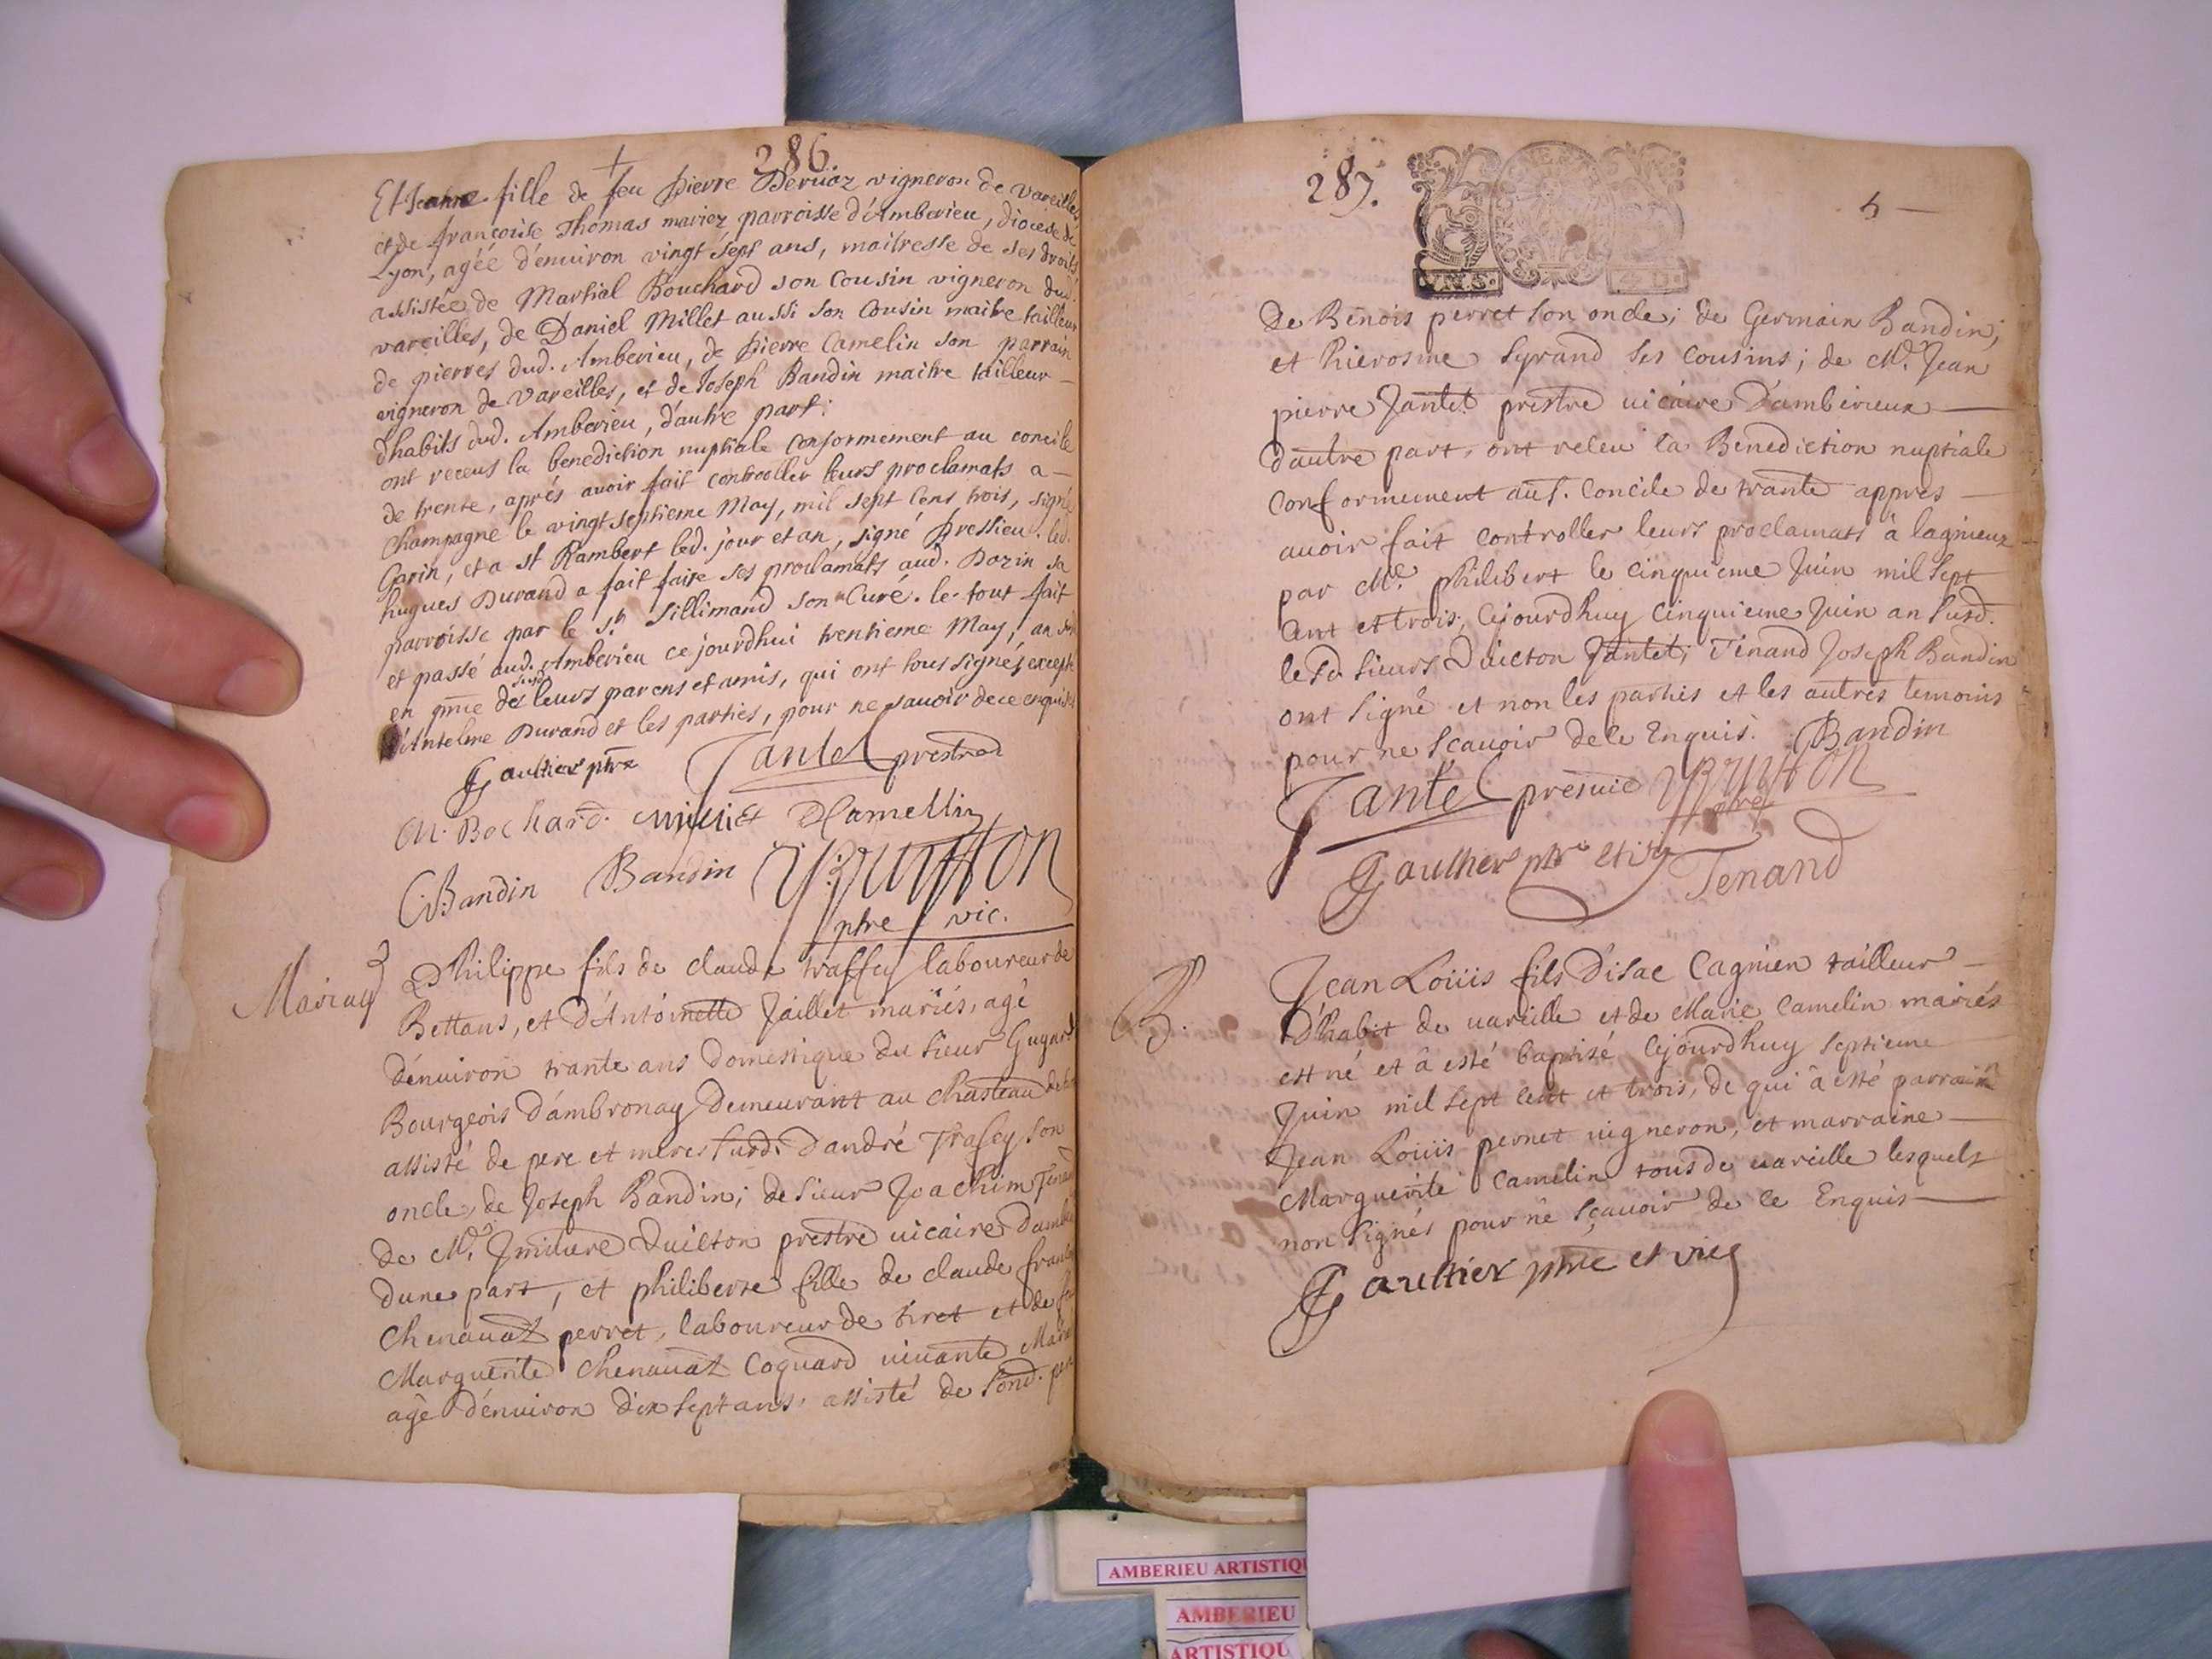 286.
Et Jeanne fille de feu pierre Deruaz vigneron de vareilles
et de françoise Thomas mariez parroisse d'Amberieu, diocese de
Lyon, agée d'enuiron vingt sept ans, maitresse de ses droits
assistée de Martial Bouchard son Cousin vigneron dud.
vareilles, de Daniel Millet aussi son Cousin maitre tailleur
de pierres dud. Amberieu, de pierre Camelin son parrain
vigneron de vareilles, et de Joseph Bandin maitre tailleur
d'habits dud. Amberieu, d'autre part;
ont receus la benediction nuptiale conformement au concile
de trente, aprés auoir fait controoller leurs proclamats a
Champagne le vingt septieme May, mil sept Cens trois, signé
Garin, et a st Rambert led. jour et an, signé Pressieu. led.
hugues Durand a fait faire ses proclamats aud. Dozin sa
parroisse par le sr. Sillimand son Curé. le tout fait
et passé aud. Amberieu ce jourdhui trentieme May, an susd
en pnce des susd leurs parens et amis, qui ont tous signés excepté
Antelme Durand et les parties, pour ne sauoir de ce enquis
Gaultier ptre Jantet prestre
M. Bochard millet Camellin
C Bandin Bandin Bruitton
ptre vic.
Mariag
Philippe fils de claude traffey laboureur de
Bettans, et d'Antoinette Jaillet mariés, agé
d'enuiron trante ans domestique du sieur Guynard
Bourgeois d'ambronay demeurant au chasteau
assisté de pere et meres susd. d'andré Trafey son
oncle, de Joseph Bandin; de sieur Joachim Tenand
de Mre. duilton prestre uicaire
dune part, et philiberte fille de claude
Chenauat perret, laboureur de tiret et de
Marguerite Chenauat Coquard uiuante
agé d'enuiron dix sept ans, assisté de sond. pere
287.
5
de Benois perret son oncle; de Germain Bandin;
et hierosme Syrand ses cousins; de Mre. Jean
pierre Jantet prestre uicaire d'amberieux
dautre part, ont releu la Benediction nuptiale
conformement au s. concile de trante appres
auoir fait controller leurs proclamats à lagnieux
par Me. philibert le cinquieme Juin mil sept
cent et trois, cejourdhuy cinquieme Juin an susd.
lesd sieurs Duilton Jantet, Tenand Joseph Bandin
ont signé et non les parties et les autres temoins
pour ne scauoir de ce Enquis. Bandin
Jantet pre vic Bruitton
ptre
Gaultier ptre et vic Tenand
B.
Jean Loüis fils d'isac Cagnien tailleur
d'habit de uareille et de Marie Camelin mariés
est né et à esté baptisé cejourdhuy septieme
Juin mil sept cent et trois, de qui à esté parrain
Jean Loüis pernet uigneron, et marraine
Marguerite Camelin tous de uareille lesquels
non signés pour ne sçauoir de ce Enquis
Gaultier ptre et vic
AMBERIEU ARTISTIQU
AMBERIEU
ARTISTIQU